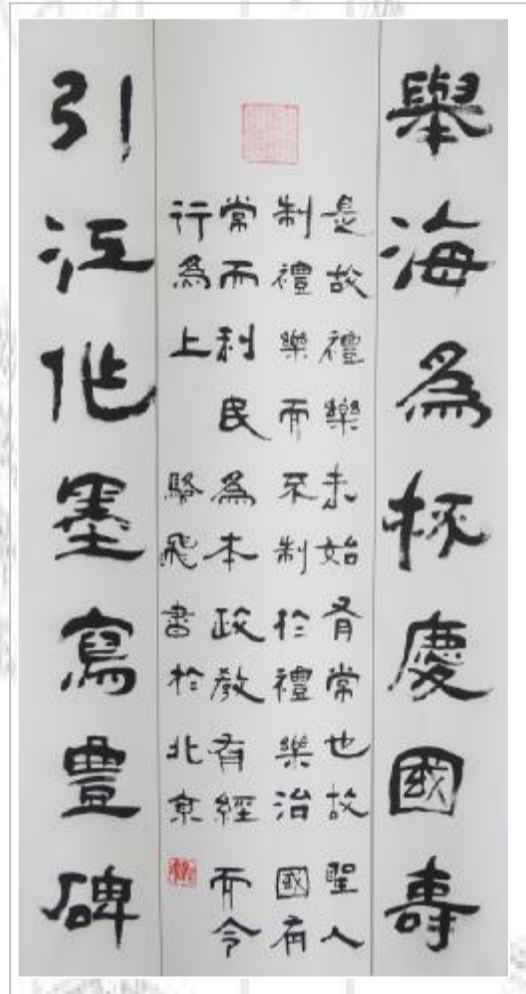 舉海為杯慶國壽
是故禮樂未始有常也故聖人
制禮樂而不制於禮樂治國有
常而利民為本政教有經而令
行為上
駱飛書於北京
引江作墨寫豐碑